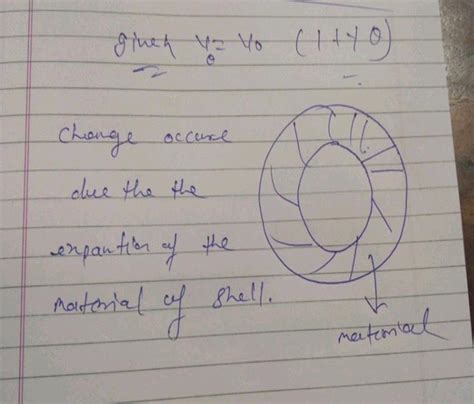 given V_θ = V_0 (1+γθ)
change occure
due the the
expantion of the
material of shell.
material